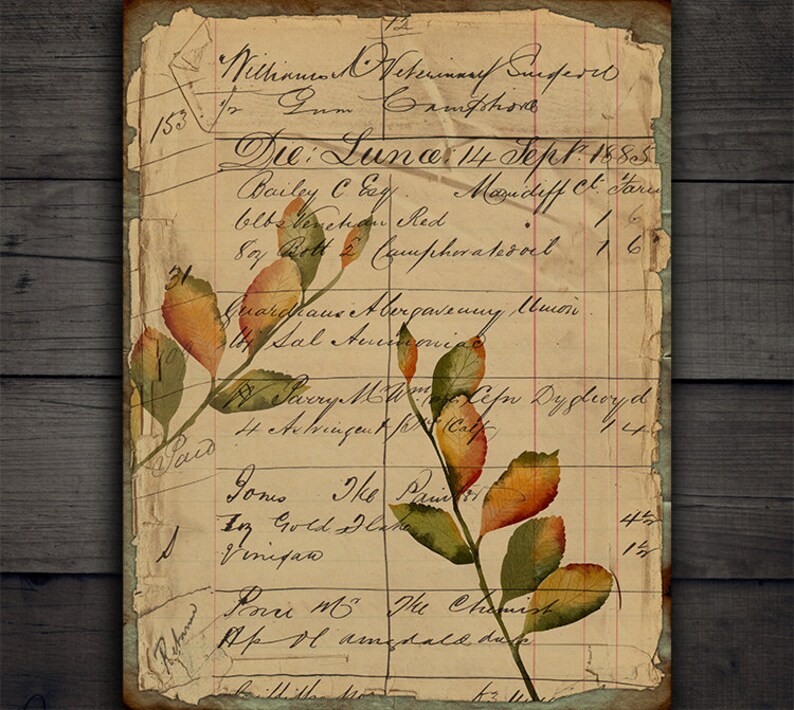 12
Williams M Veterinary Surgeon
Gum Camphor
153
Die: Lunæ: 14 Sept. 1885
Bailey C Esq Mardiff Ct. Farm
6lbs Venetian Red 1 6
8oz Bott 2 Camphorated oil 1 6
31
Guardians Abergavenny Union
Sal Ammoniac
Parry M Wm Cefn
4 Astringent (Calf) 1 4
Paid
Jones The Painter
1oz Gold Flake 4½
S
Vinegar 1½
Price Mr The Chemist
Ol amygdalæ dulc
Returned